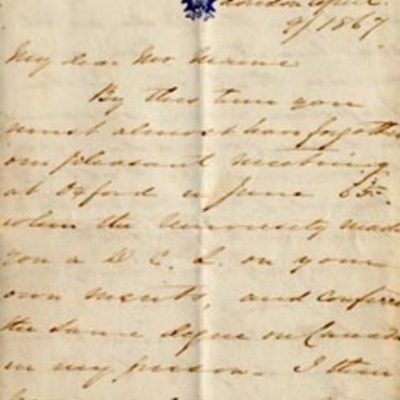 London April
9/1867
My dear Mr Maine
By this time you
must almost have forgotten
our pleasant meeting
at Oxford in June 65.
when the University made
you a D. C. L. on your
own merits, and conferred
the same degree on Canada
in my person - I then